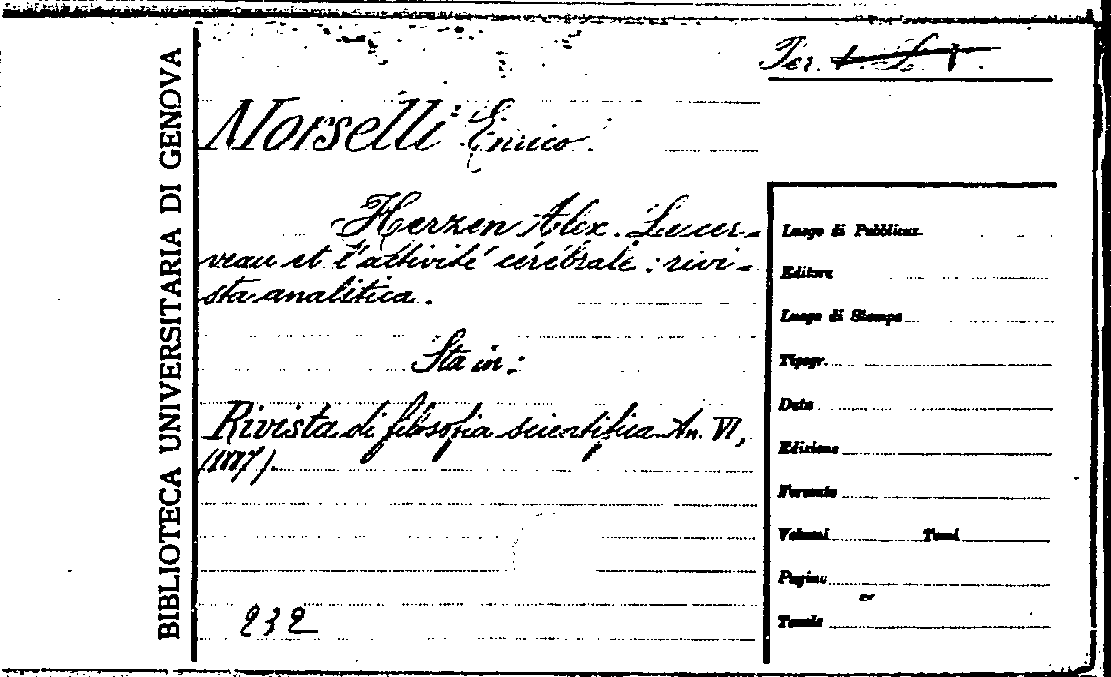 BIBLIOTECA UNIVERSITARIA DI GENOVA
Per.
Morselli Enrico.
Herzen Alex. Le cer-
veau et l'activité cérébrale: rivi-
sta analitica.
Sta in:
Rivista di filosofia scientifica An. VI,
(1887).
232
Luogo di Pubblicaz.
Editore
Luogo di Stampa
Tipogr.
Data
Edizione
Formato
Volumi Tomi
Pagine
Tavole